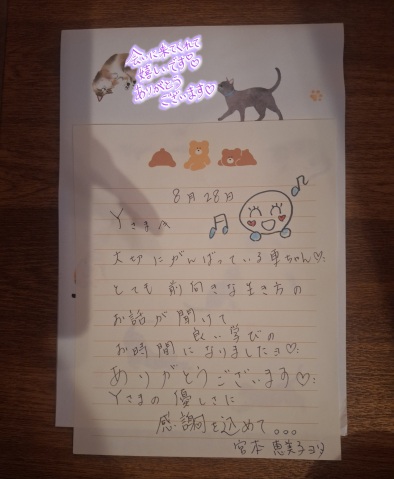 会いに来てくれて
嬉しいです♡
ありがとう
ございます♡
8月28日
Yさまへ
大切にがんばっている恵ちゃん♡
とても前向きな生き方の
お話が聞けて
良い学びの
お時間になりました♡
ありがとうございます♡
Yさまの優しさに
感謝を込めて...
宮本恵美子より